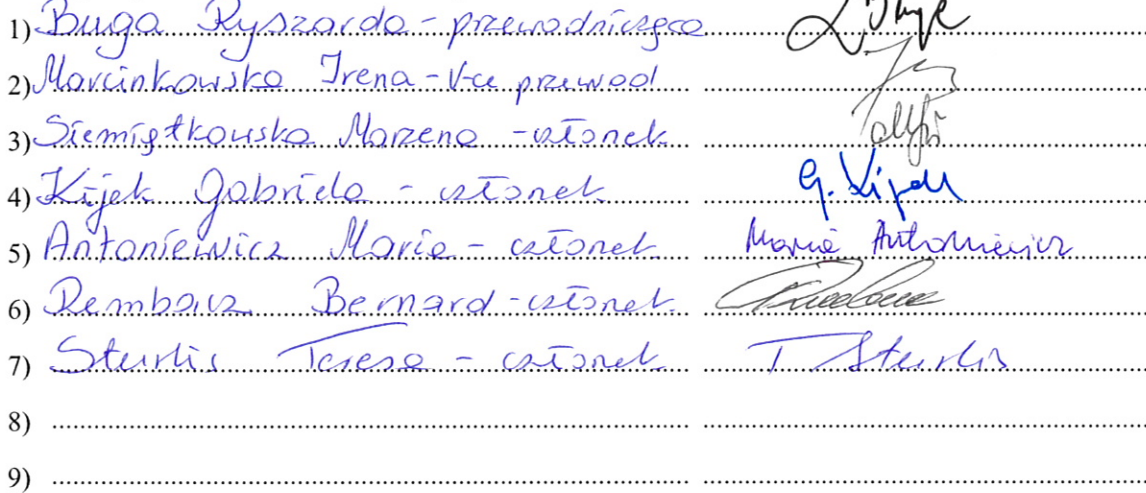 1) Buga Ryszarda - przewodnicząca
2) Marcinkowska Irena - V-ce przewod
3) Siemiątkowska Marzena - członek
4) Kijek Gabriela - członek G. Kijek
5) Antoniewicz Maria - członek Maria Antoniewicz
6) Rembacz Bernard - członek
7) Sturlis Teresa - członek T Sturlis
8)
9)